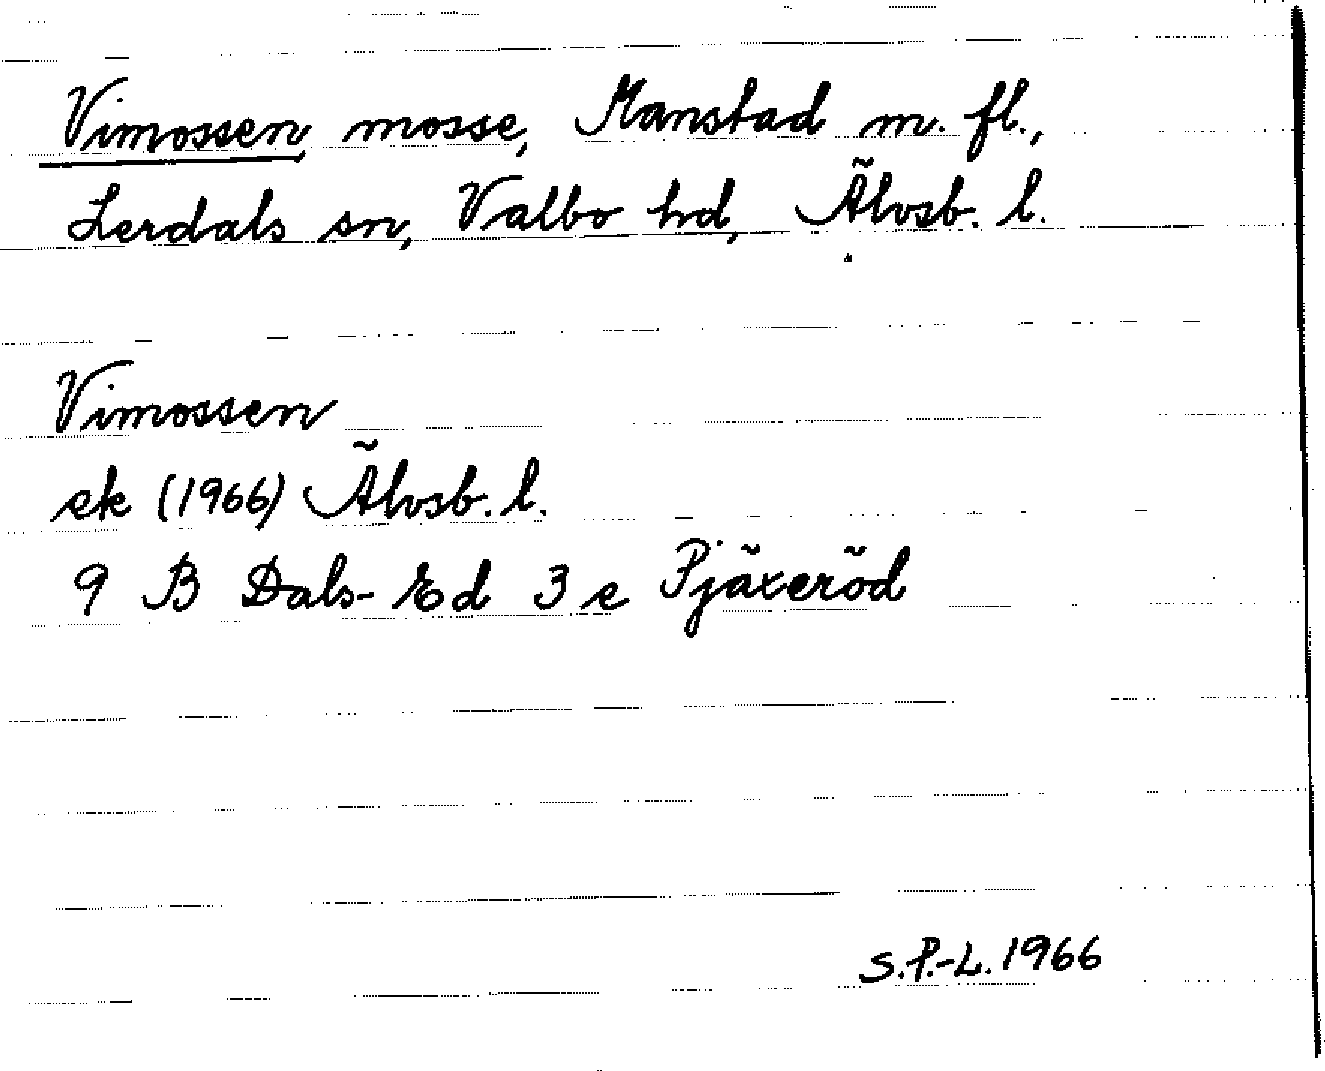 Vimossen, mosse, Manstad m. fl.,
Lerdals sn, Valbo hd, Älvsb. l.
Vimossen
ek (1966) Älvsb. l.
9 B Dals-Ed 3 e Pjäxeröd
S.P.-L. 1966